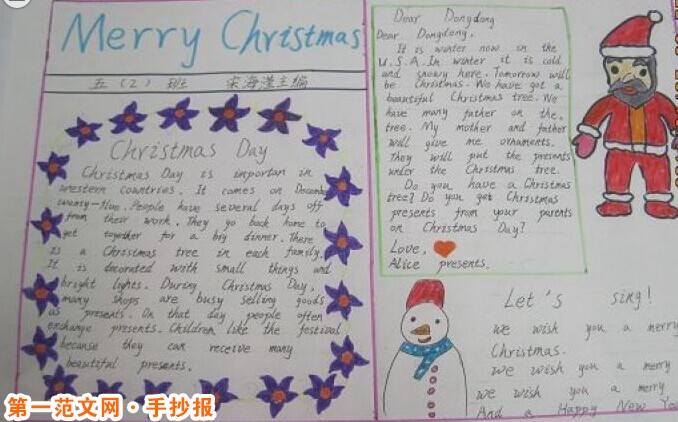 Merry Christmas
五（2）班 宋海滢主编
Christmas Day
Christmas Day is importan in
western countries. It comes on December
twenty-five. People have several days off
from their work. They go back home to
get together for a big dinner. There
is a Christmas tree in each family.
It is decorated with small things and
bright lights. During Christmas Day,
many shops are busy selling goods
as presents. On that day people often
exchange presents. Children like the festival
because they can receive many
beautiful presents.
Dear Dongdong
Dear Dongdong,
It is winter now in the
U.S.A. In winter it is cold
and snowy here. Tomorrow will
be Christmas. We have got a
beautiful Christmas tree. We
have many father on the.
tree. My mother and father
will give me ornaments.
They will put the presents
under the Christmas tree.
Do you have a Christmas
tree? Do you get Christmas
presents from your parents
on Christmas Day?
Love,
Alice presents.
Let's sing!
we wish you a merry
Christmas.
we wish you a merry
we wish you a merry
And a Happy New You
第一范文网·手抄报